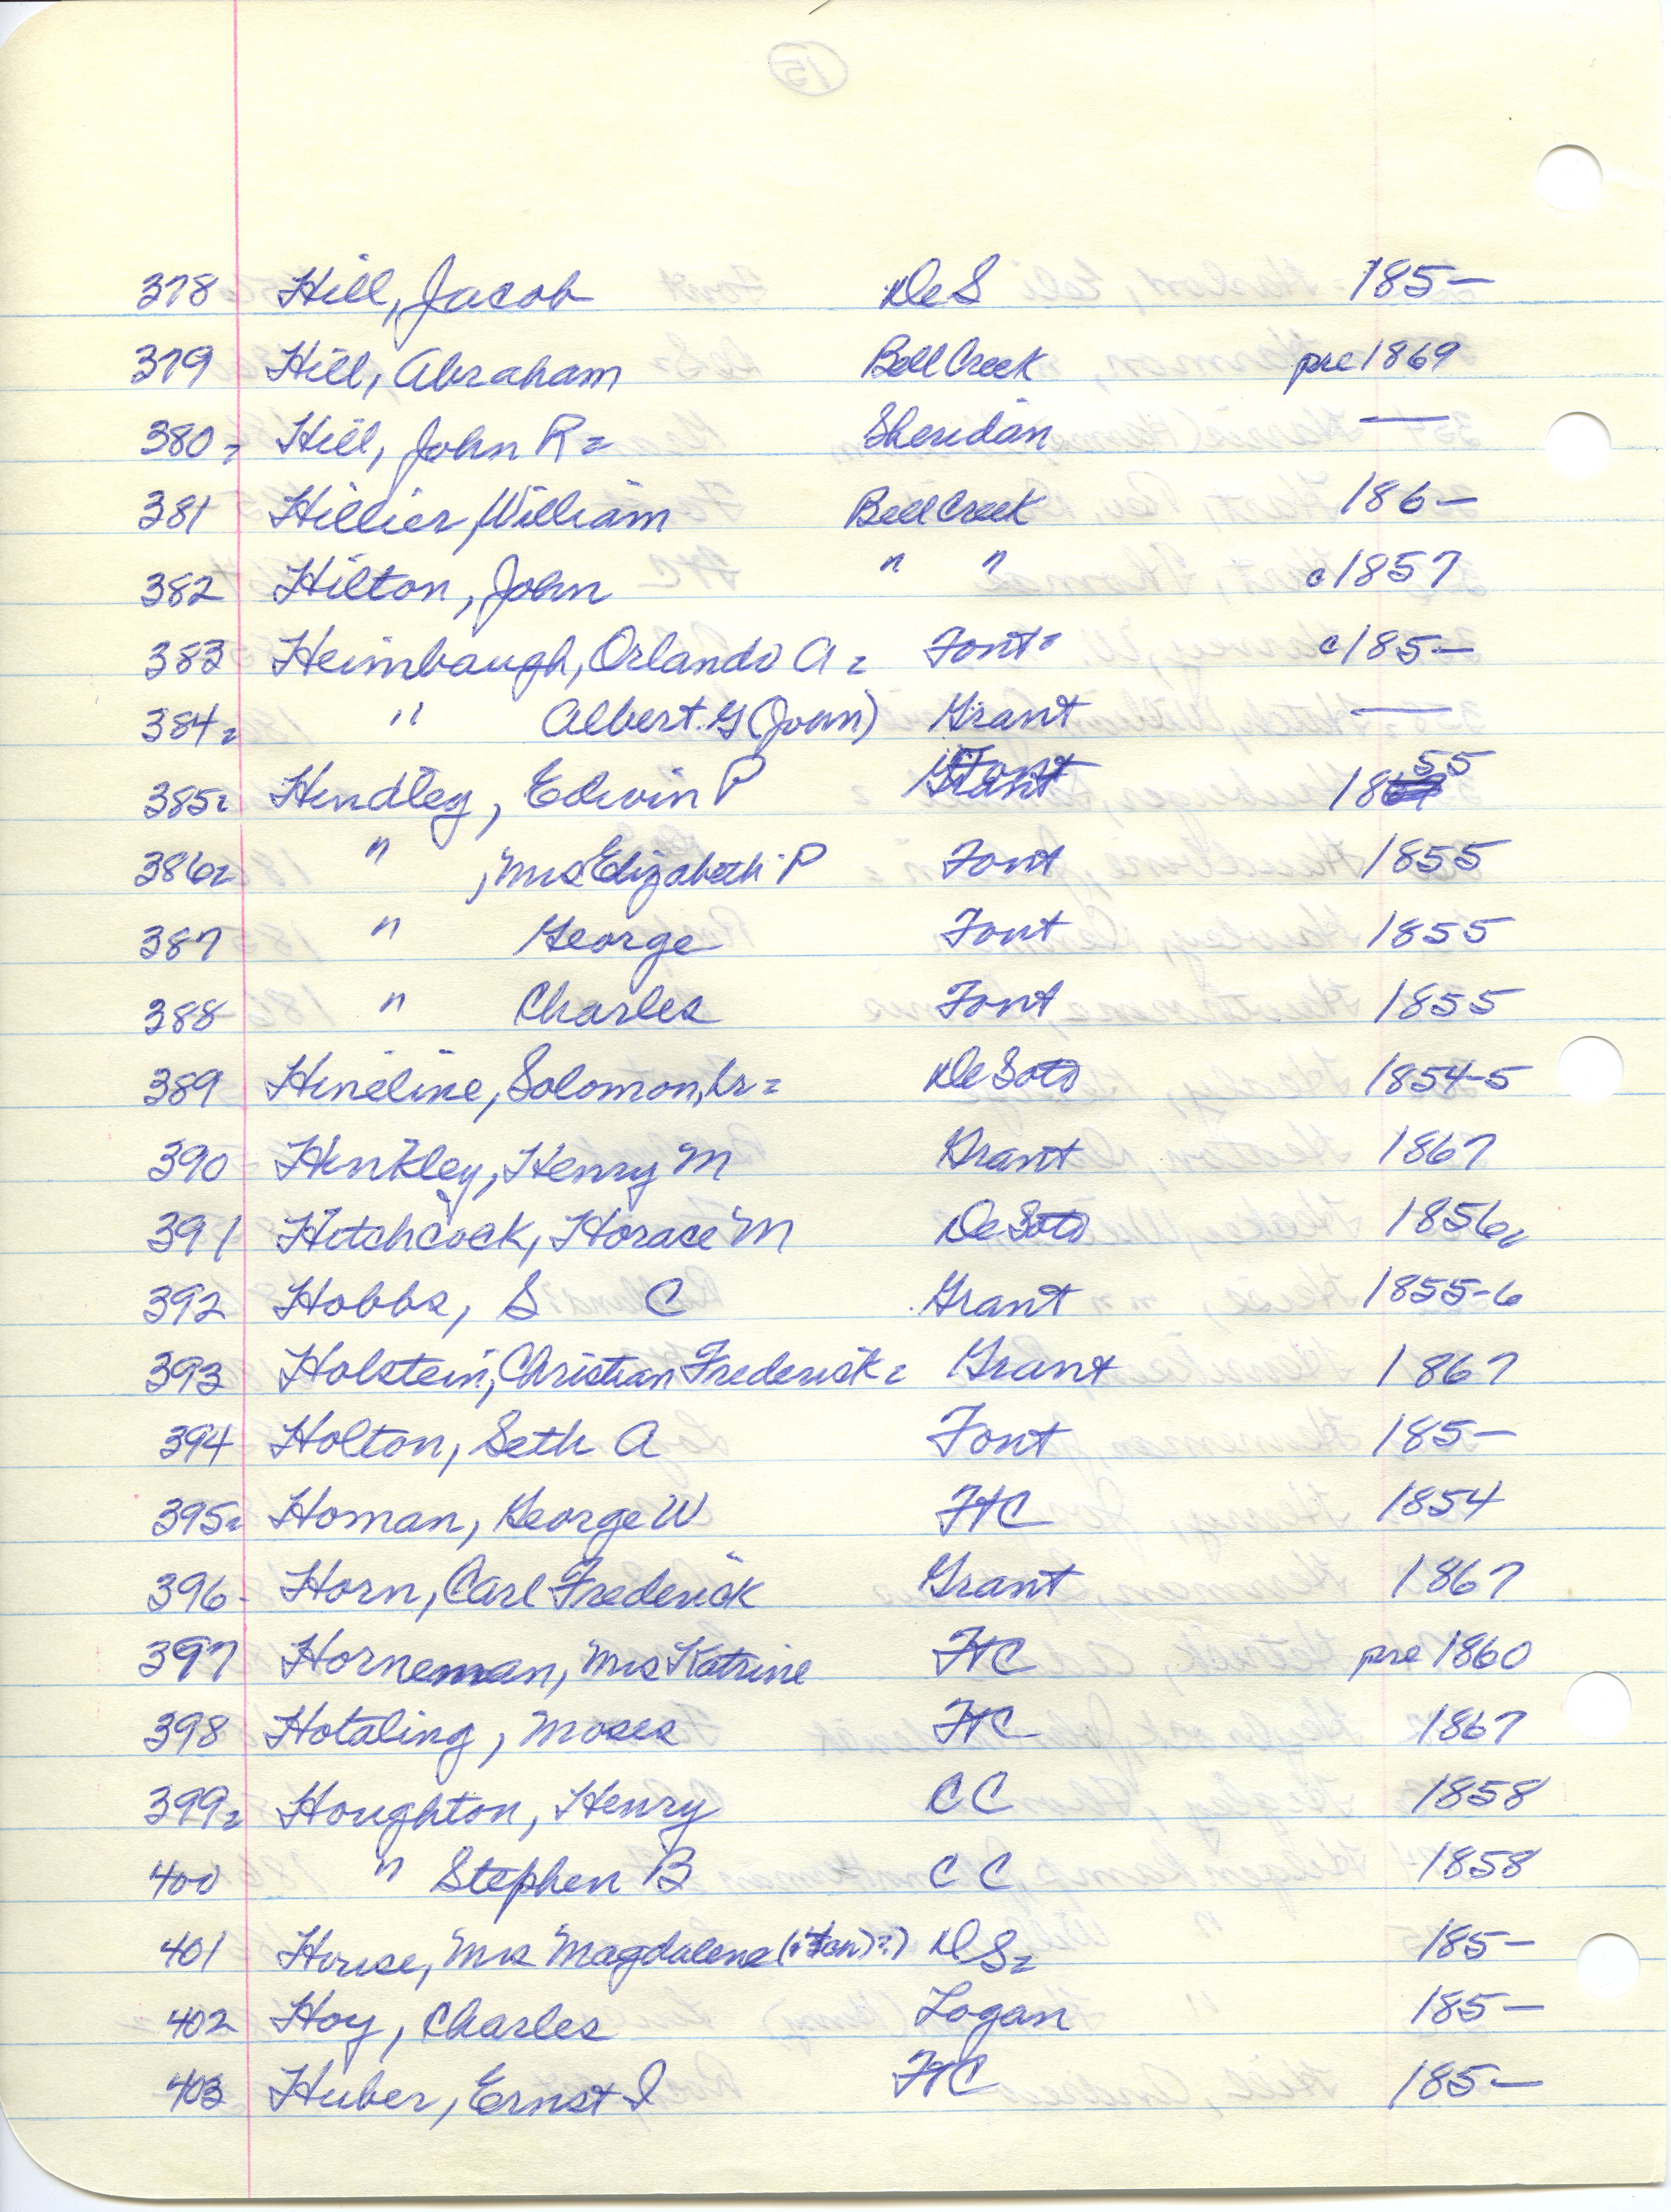 378 Hill, Jacob De S 185—
379 Hill, Abraham Bell Creek pre 1869
380 Hill, John R Sheridan —
381 Hillier, William Bell Creek 186—
382 Hilton, John " " c1857
383 Heimbaugh, Orlando A Font c185—
384 " Albert G (John) Grant —
385 Hindley, Edwin P Font 1855
386 " , Mrs Elizabeth P Font 1855
387 " George Font 1855
388 " Charles Font 1855
389 Hineline, Solomon, Sr De Soto 1854-5
390 Hinkley, Henry M Grant 1867
391 Hitchcock, Horace M De Soto 1856
392 Hobbs, S C Grant 1855-6
393 Holstein, Christian Frederick Grant 1867
394 Holton, Seth A Font 185—
395 Homan, George W FtC 1854
396 Horn, Carl Frederick Grant 1867
397 Horneman, Mrs Katrine FtC pre 1860
398 Hotaling, Moses FtC 1867
399 Houghton, Henry CC 1858
400 " Stephen B CC 1858
401 House, Mrs Magdalena D S 185—
402 Hoy, Charles Logan 185—
403 Huber, Ernst I FtC 185—